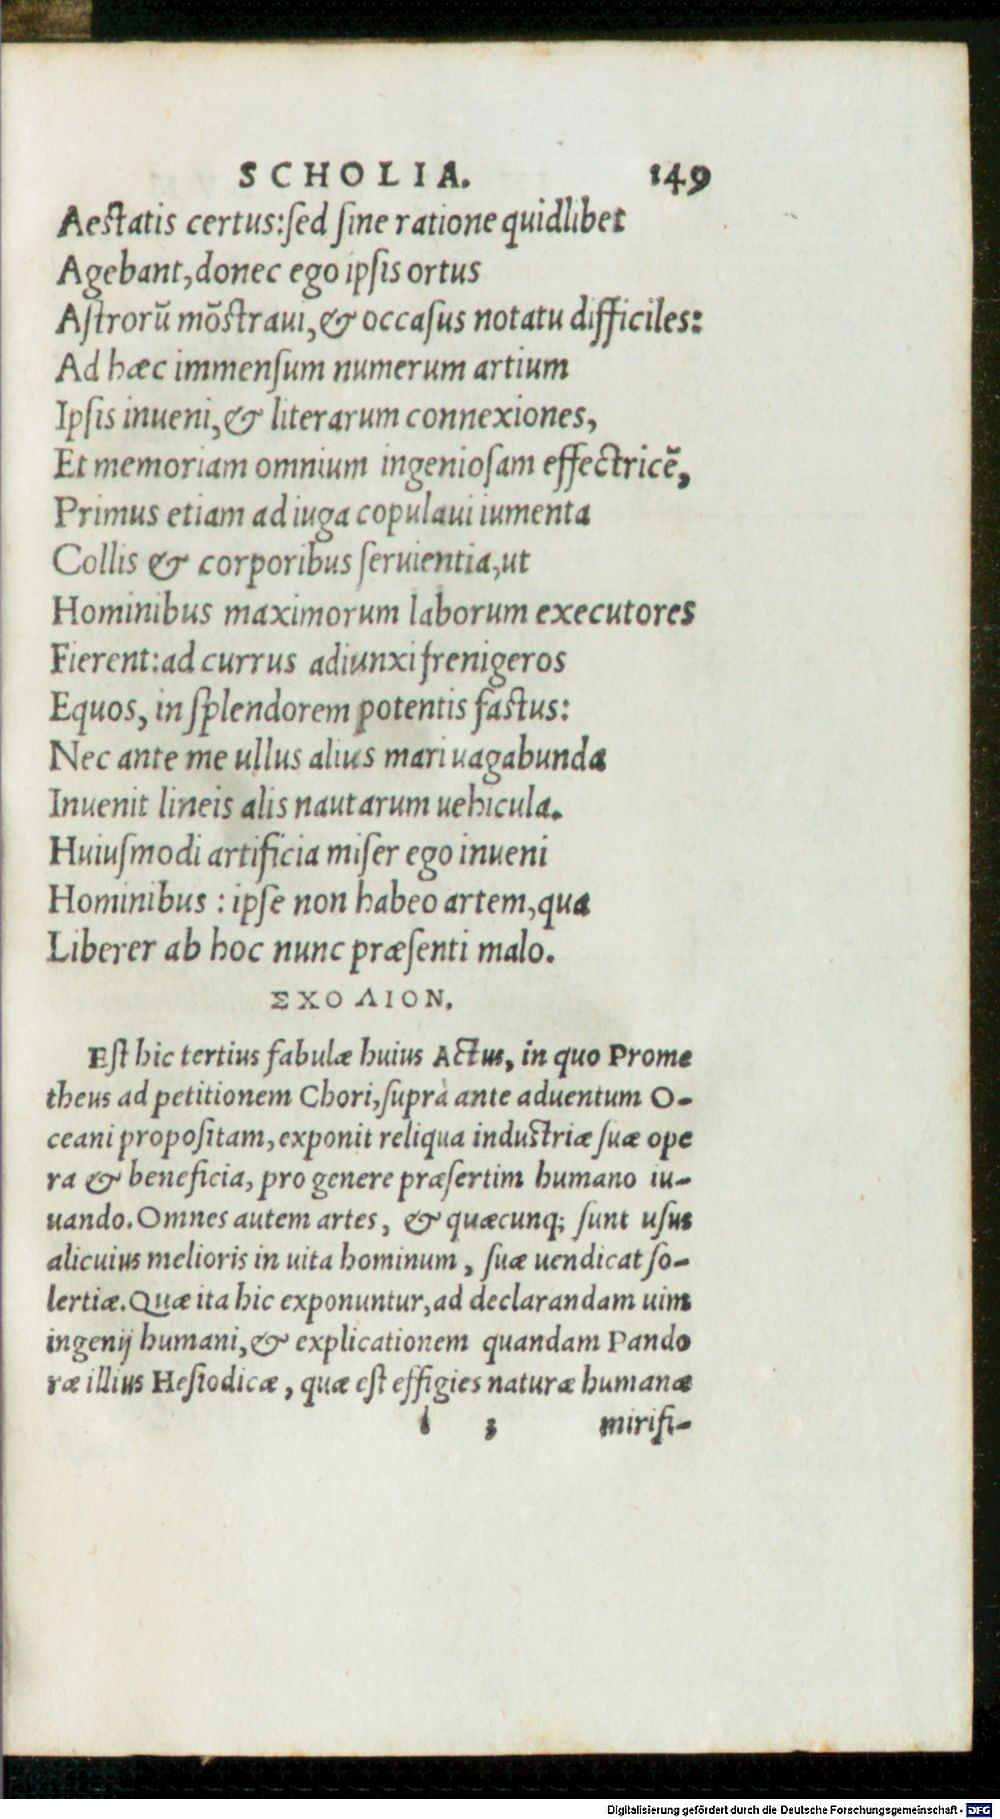 SCHOLIA. 149
Aestatis certus:sed sine ratione quidlibet
Agebant,donec ego ipsis ortus
Astrorũ mõstraui,& occasus notatu difficiles:
Ad hæc immensum numerum artium
Ipsis inueni,& literarum connexiones,
Et memoriam omnium ingeniosam effectricẽ,
Primus etiam ad iuga copulaui iumenta
Collis & corporibus seruientia,ut
Hominibus maximorum laborum executores
Fierent:ad currus adiunxi frenigeros
Equos, in splendorem potentis fastus:
Nec ante me ullus alius mari uagabunda
Inuenit lineis alis nautarum uehicula.
Huiusmodi artificia miser ego inueni
Hominibus : ipse non habeo artem,qua
Liberer ab hoc nunc præsenti malo.
ΣΧΟΛΙΟΝ.
Est hic tertius fabulæ huius Actus, in quo Prome
theus ad petitionem Chori,suprà ante aduentum O-
ceani propositam,exponit reliqua industriæ suæ ope
ra & beneficia, pro genere præsertim humano iu-
uando.Omnes autem artes, & quæcunq; sunt usus
alicuius melioris in uita hominum, suæ uendicat so-
lertiæ.Quæ ita hic exponuntur,ad declarandam uim
ingenij humani,& explicationem quandam Pando
ræ illius Hesiodicæ, quæ est effigies naturæ humanæ
l 3 mirifi-
Digitalisierung gefördert durch die Deutsche Forschungsgemeinschaft - DFG